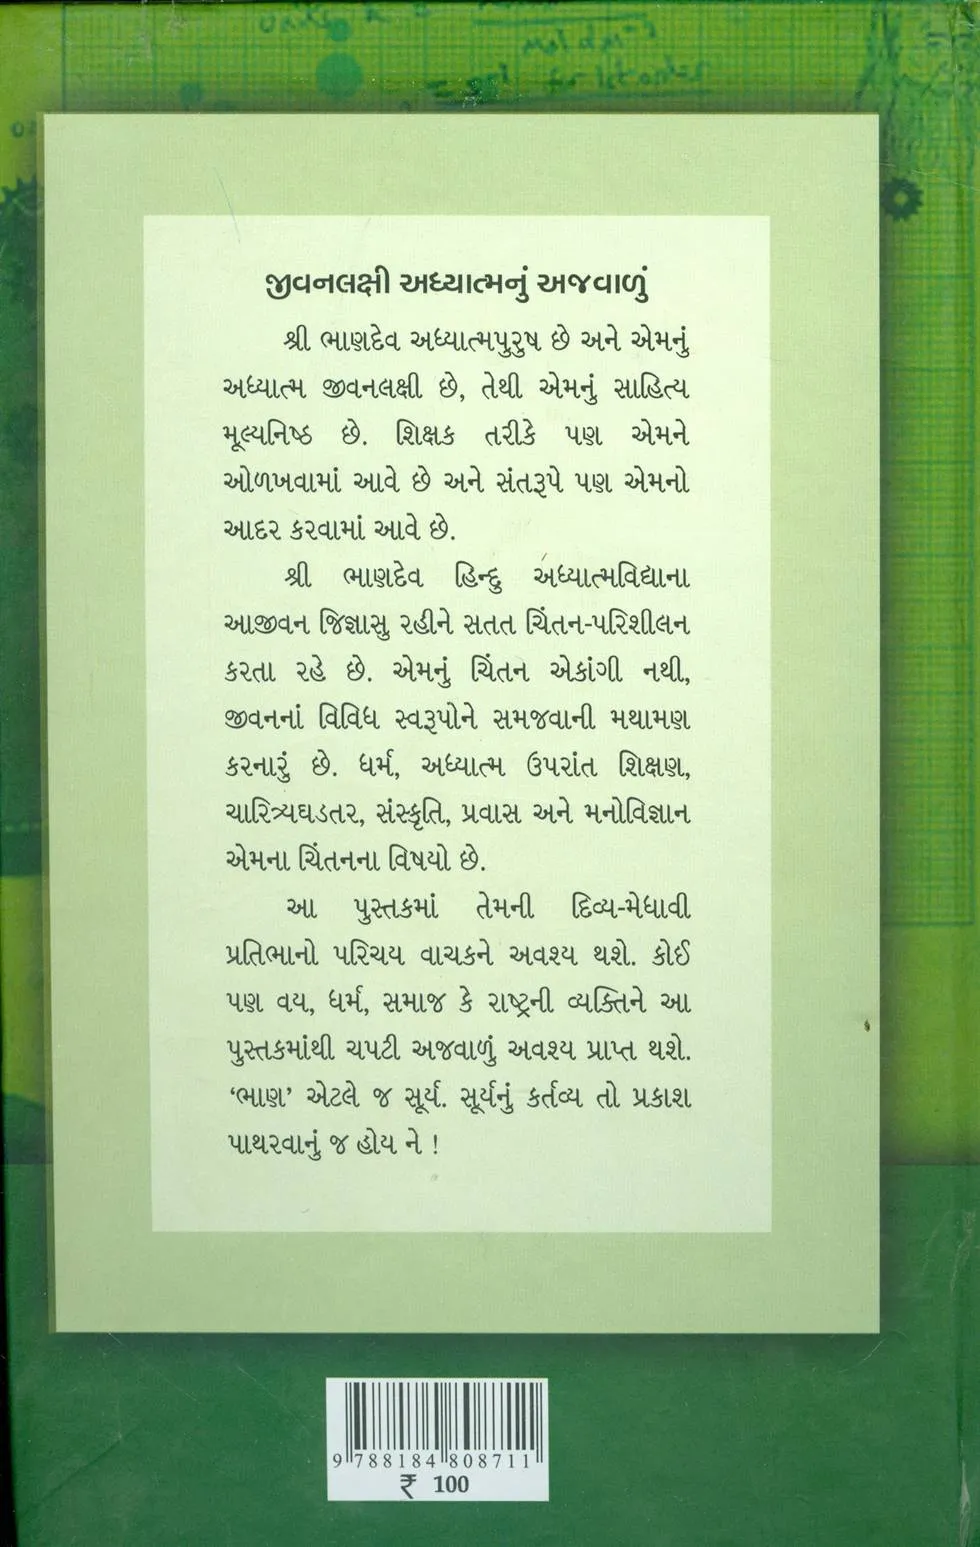 જીવનલક્ષી અધ્યાત્મનું અજવાળું
શ્રી ભાણદેવ અધ્યાત્મપુરુષ છે અને એમનું
અધ્યાત્મ જીવનલક્ષી છે, તેથી એમનું સાહિત્ય
મૂલ્યનિષ્ઠ છે. શિક્ષક તરીકે પણ એમને
ઓળખવામાં આવે છે અને સંતરૂપે પણ એમનો
આદર કરવામાં આવે છે.
શ્રી ભાણદેવ હિન્દુ અધ્યાત્મવિદ્યાના
આજીવન જિજ્ઞાસુ રહીને સતત ચિંતન-પરિશીલન
કરતા રહે છે. એમનું ચિંતન એકાંગી નથી,
જીવનનાં વિવિધ સ્વરૂપોને સમજવાની મથામણ
કરનારું છે. ધર્મ, અધ્યાત્મ ઉપરાંત શિક્ષણ,
ચારિત્ર્યઘડતર, સંસ્કૃતિ, પ્રવાસ અને મનોવિજ્ઞાન
એમના ચિંતનના વિષયો છે.
આ પુસ્તકમાં તેમની દિવ્ય-મેધાવી
પ્રતિભાનો પરિચય વાચકને અવશ્ય થશે. કોઈ
પણ વય, ધર્મ, સમાજ કે રાષ્ટ્રની વ્યક્તિને આ
પુસ્તકમાંથી ચપટી અજવાળું અવશ્ય પ્રાપ્ત થશે.
‘ભાણ’ એટલે જ સૂર્ય. સૂર્યનું કર્તવ્ય તો પ્રકાશ
પાથરવાનું જ હોય ને !
9 788184 808711
₹ 100